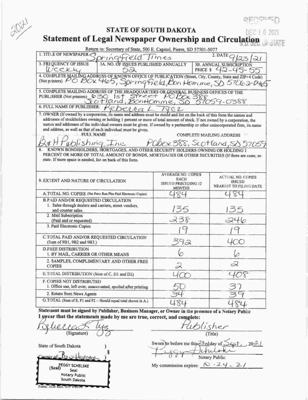 2021
RECEIVED
STATE OF SOUTH DAKOTA
Statement of Legal Newspaper Ownership and Circulation
Return to: Secretary of State, 500 E. Capitol, Pierre, SD 57501-5077
1. TITLE OF NEWSPAPER Springfield Times
2. DATE 9/23/21
3. FREQUENCY OF ISSUE Weekly
3A. NO. OF ISSUES PUBLISHED ANNUALLY 52
3B. ANNUAL SUBSCRIPTION
4. COMPLETE MAILING ADDRESS OF KNOWN OFFICE OF PUBLICATION (Street, City, County, State and ZIP+4 Code) (Not printers) PO Box 465, Springfield, Bon Homme, SD 57062-0465
5. COMPLETE MAILING ADDRESS OF THE HEADQUARTERS OR GENERAL BUSINESS OFFICES OF THE PUBLISHER (Not printers) 1st Street PO Box 388
Scotland, Bon Homme, SD 57059-0388
6. FULL NAME OF PUBLISHER Rebecca L. Tycz
7. OWNER (If owned by a corporation, its name and address must be stated and also the names and addresses of stockholders owning or holding 1 percent or more of total amount of stock. If not owned by a corporation, the names and addresses of the individual owners must be given. If owned by a partnership or other unincorporated firm, its name and address, as well as that of each individual must be given.
FULL NAME COMPLETE MAILING ADDRESS
B & H Publishing, Inc PO Box 388, Scotland, SD 57059
8. KNOWN BONDHOLDERS, MORTGAGEES, AND OTHER SECURITY HOLDERS OWNING OR HOLDING 1 PERCENT OR MORE OF TOTAL AMOUNT OF BONDS, MORTGAGES OR OTHER SECURITIES (If there are none, so state. If more space is needed, list on back of this form.
9. EXTENT AND NATURE OF CIRCULATION
AVERAGE NO. COPIES EACH ISSUE DURING PRECEDING 12 MONTHS
ACTUAL NO. COPIES ISSUED NEAREST TO FILING DATE
A. TOTAL NO. COPIES 484 484
B. PAID AND/OR REQUESTED CIRCULATION
1. Sales through dealers and carriers, street vendors, and counter sales 135 135
2. Mail Subscription (Paid and or requested) 238 246
3. Paid Electronic Copies 19 19
C. TOTAL PAID AND/OR REQUESTED CIRCULATION (Sum of 9B1, 9B2 and 9B3) 392 400
D. FREE DISTRIBUTION
1. BY MAIL, CARRIER OR OTHER MEANS 6 6
2. SAMPLES, COMPLIMENTARY AND OTHER FREE COPIES 2 2
E. TOTAL DISTRIBUTION (Sum of C, D1 and D2) 400 408
F. COPIES NOT DISTRIBUTED
1. Office use, left over, unaccounted, spoiled after printing 50 37
2. Return from News Agents 34 39
G. TOTAL (Sum of E, F1 and F2 - Should equal total shown in A) 484 484
Statement must be signed by Publisher, Business Manager, or Owner in the presence of a Notary Public
I swear that the statements made by me are true, correct, and complete:
Rebecca L Tycz Publisher
(Title)
State of South Dakota )
County of Bon Homme )
Sworn to before me this day of Sept. 2021
Peggy Schelske
Notary Public
My commission expires: 10-24-21
(Seal)
PEGGY SCHELSKE
Seal
Notary Public
South Dakota